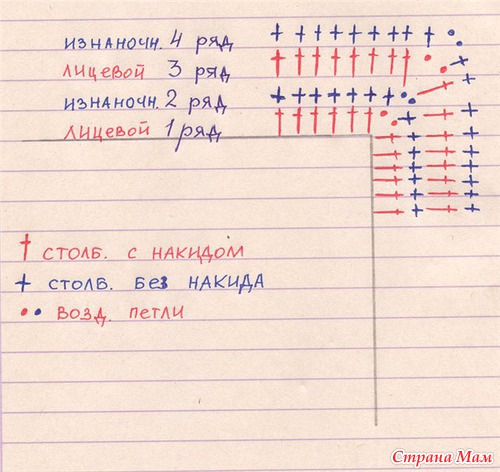 изнаночн. 4 ряд
лицевой 3 ряд
изнаночн. 2 ряд
лицевой 1 ряд
столб. с накидом
столб. без накида
возд. петли
Страна Мам